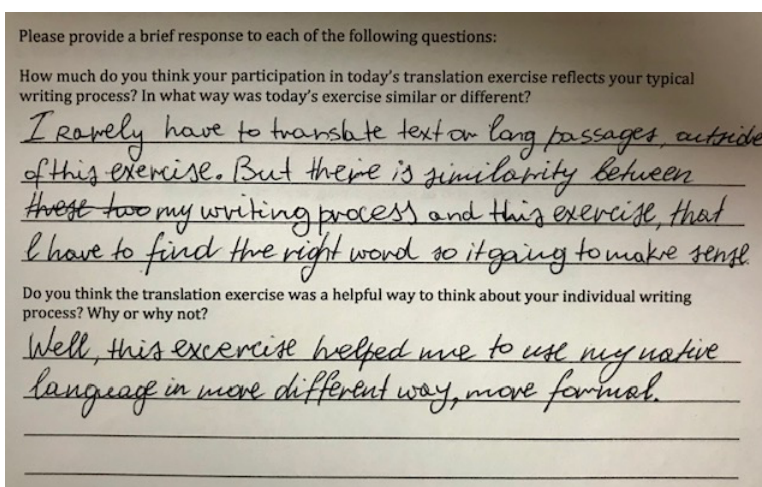 Please provide a brief response to each of the following questions:
How much do you think your participation in today's translation exercise reflects your typical
writing process? In what way was today's exercise similar or different?
I rarely have to translate text or long passages, outside
of this exercise. But there is similarity between
these two my writing process and this exercise, that
I have to find the right word so it gaing to make sense.
Do you think the translation exercise was a helpful way to think about your individual writing
process? Why or why not?
Well, this excercise helped me to use my native
language in more different way, more formal.